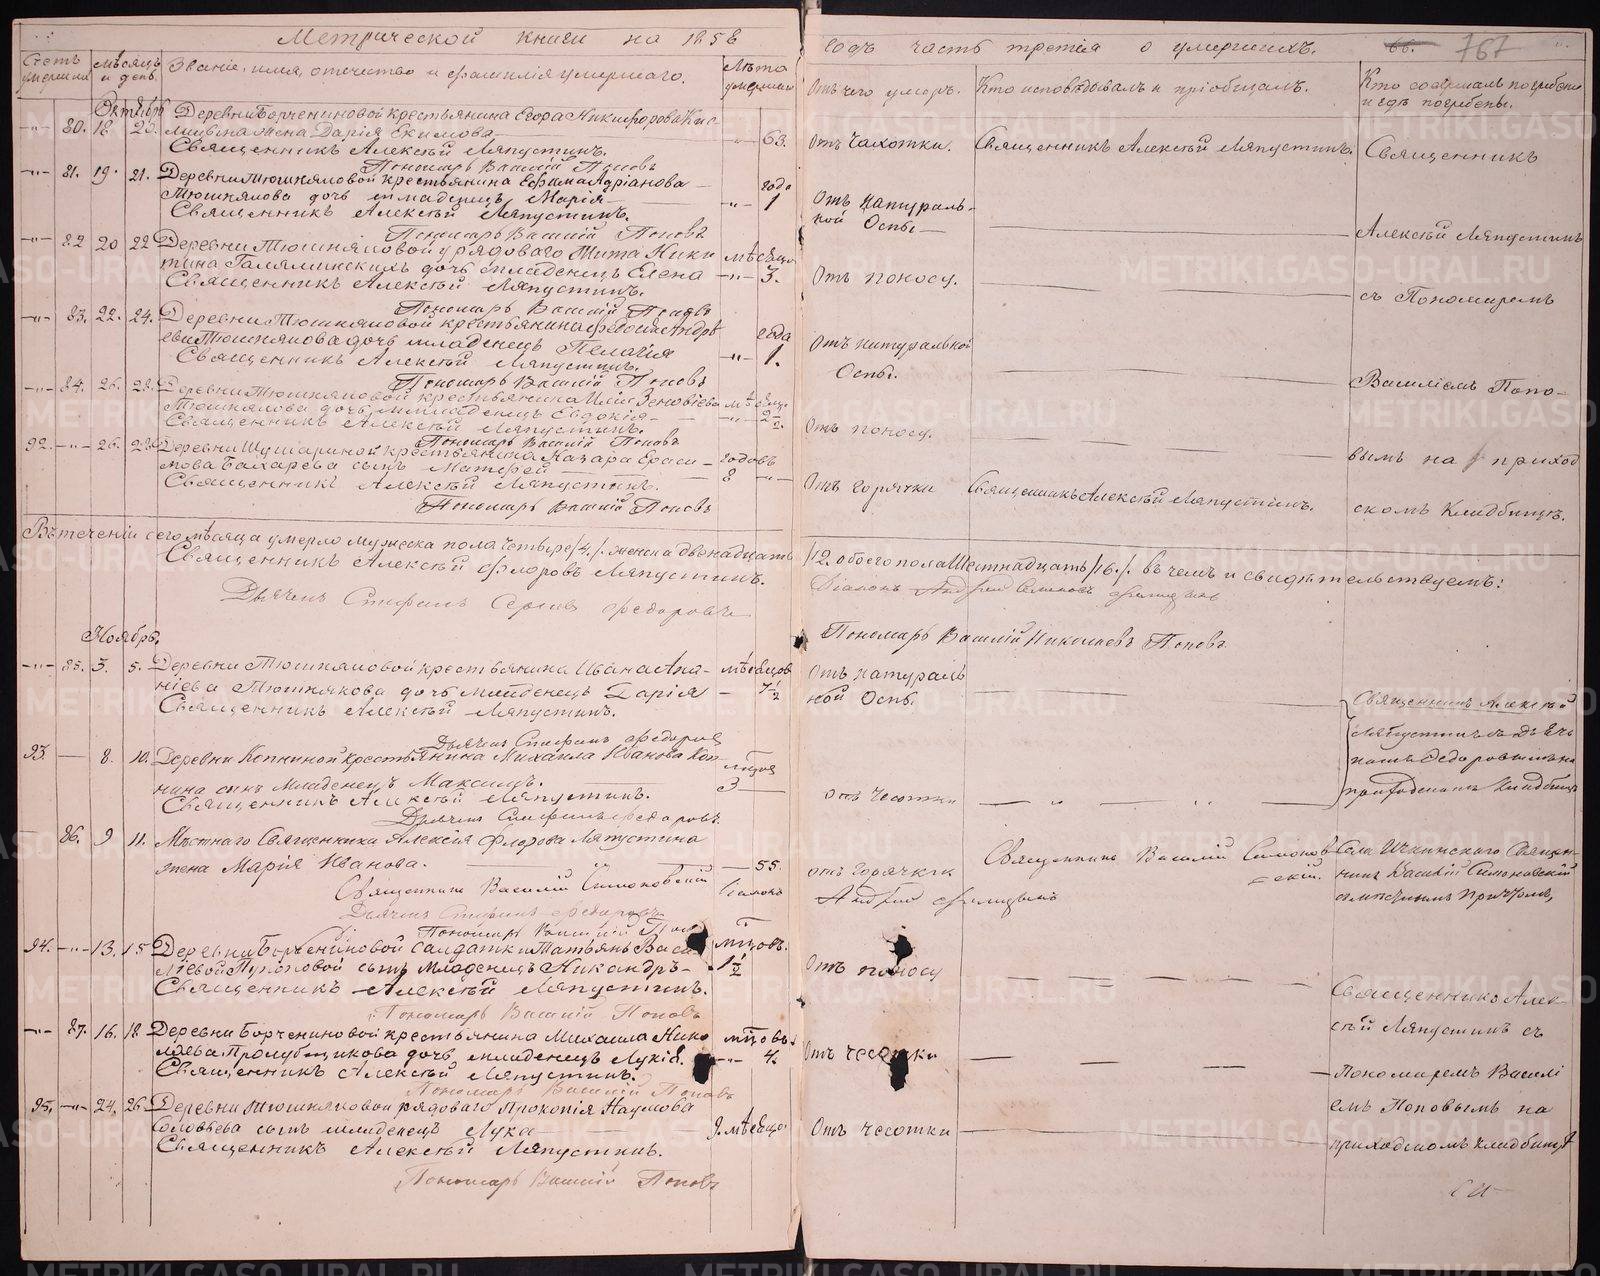 Метрической книги на 1858
годъ часть третiя о умершихъ.
66. 767
Счетъ умершихъ
мѣсяцъ и день.
Званiе, имя, отечество и фамилiя умершаго.
Лѣта умершихъ
Отъ чего умеръ.
Кто исповѣдывалъ и прiобщалъ.
Кто совершалъ погребенiе и гдѣ погребены.
Октябрь
80. 18 20. Деревни Борчениновой крестьянина Егора Никифорова
жена Дарiя Екимова 63. Отъ Чахотки. Священникъ Алексѣй Ляпустинъ. Священникъ
Священникъ Алексѣй Ляпустинъ.
Пономарь Василiй Поповъ
81. 19. 21. Деревни Тюшняковой крестьянина Ефима Адрiанова года
Тюшнякова дочь младенецъ Марiя 1 Отъ натураль-
ной Оспы
Священникъ Алексѣй Ляпустинъ.
Пономарь Василiй Поповъ Алексѣй Ляпустинъ
82 20 22 Деревни Тюшняковой рядоваго Тита Ники мѣсяцо
тина дочь младенецъ Елена 3. Отъ поносу.
Священникъ Алексѣй Ляпустинъ. съ Пономаремъ
Пономарь Василiй Поповъ
83. 22. 24. Деревни Тюшняковой крестьянина Андрѣ года
ева Тюшнякова дочь младенецъ Пелагiя 1. Отъ натуральной
Оспы.
Священникъ Алексѣй Ляпустинъ.
Пономарь Василiй Поповъ Василiемъ Попо-
84. 26. 28. Деревни Тюшняковой крестьянина Зеновiева
Тюшнякова дочь младенецъ Евдокiя Отъ поносу.
Священникъ Алексѣй Ляпустинъ.
Пономарь Василiй Поповъ вымъ на приход
92. 26. 28. Деревни крестьянина Назара Ераси- годовъ
мова Бахарева сынъ Матфей 8 Отъ горячки Священникъ Алексѣй Ляпустинъ. скомъ Кладбищѣ.
Священникъ Алексѣй Ляпустинъ.
Пономарь Василiй Поповъ
Въ теченiи сего мѣсяца умерло мужеска пола четыре /4./ женска двенадцать
/12. обоего пола Шестнадцать /16./. въ чемъ и свидѣтельствуемъ:
Священникъ Алексѣй Флоровъ Ляпустинъ.
Дiаконъ Андрей
Дьячекъ Стефанъ Сергiевъ Федоровъ
Пономарь Василiй Николаевъ Поповъ
Ноябрь.
85. 3. 5. Деревни Тюшняковой крестьянина Ивана Ана- мѣсяцов
нiева Тюшнякова дочь младенецъ Дарiя 7 1/2 Отъ натураль
ной Оспы.
Священникъ Алексѣй Ляпустинъ.
Дьячекъ Стефанъ Федоровъ
Священникъ Алексѣй
Ляпустинъ съ дьяч
комъ Федоровымъ на
приходскомъ Кладбищѣ
93. 8. 10. Деревни Копниной крестьянина Михаила Иванова Коп-
нина сынъ Младенецъ Максимъ. 3 отъ Чесотки
Священникъ Алексѣй Ляпустинъ.
Дьячекъ Стефанъ Федоровъ
86. 9 11. Мѣстнаго Священника Алексѣя Флорова Ляпустина
жена Марiя Иванова. 55. отъ горячки Священникъ Василiй Симонов
скiй. Села Ичкинскаго Священ-
никъ Василiй Симоновскiй
съ мѣстнымъ причтомъ,
Священникъ Василiй Симоновскiй Дiаконъ Андрей
Дьячекъ Стефанъ Федоровъ
Пономарь Василiй Поп
94. 13. 15 Деревни Борчениновой Салдатки Татьяны Васи мѣцовъ.
лiевой сынъ Младенецъ Никандръ 1 1/2 Отъ поносу
Священникъ Алексѣй Ляпустинъ. Священникъ Алек-
Пономарь Василiй Поповъ сѣй Ляпустинъ съ
87. 16. 18. Деревни Борчениновой крестьянина Михаила Нико мѣцовъ.
лаева дочь младенецъ Лукiя. 4. Отъ чесотки
Священникъ Алексѣй Ляпустинъ. Пономаремъ Василi
Пономарь Василiй Поповъ
95. 24. 26. Деревни Тюшняковой рядоваго Прокопiя Наумова емъ Поповымъ на
Соловьева сынъ младенецъ Лука 9. мѣсяцо Отъ чесотки приходскомъ кладбищѣ
Священникъ Алексѣй Ляпустинъ.
Пономарь Василiй Поповъ
METRIKI.GASO-URAL.RU